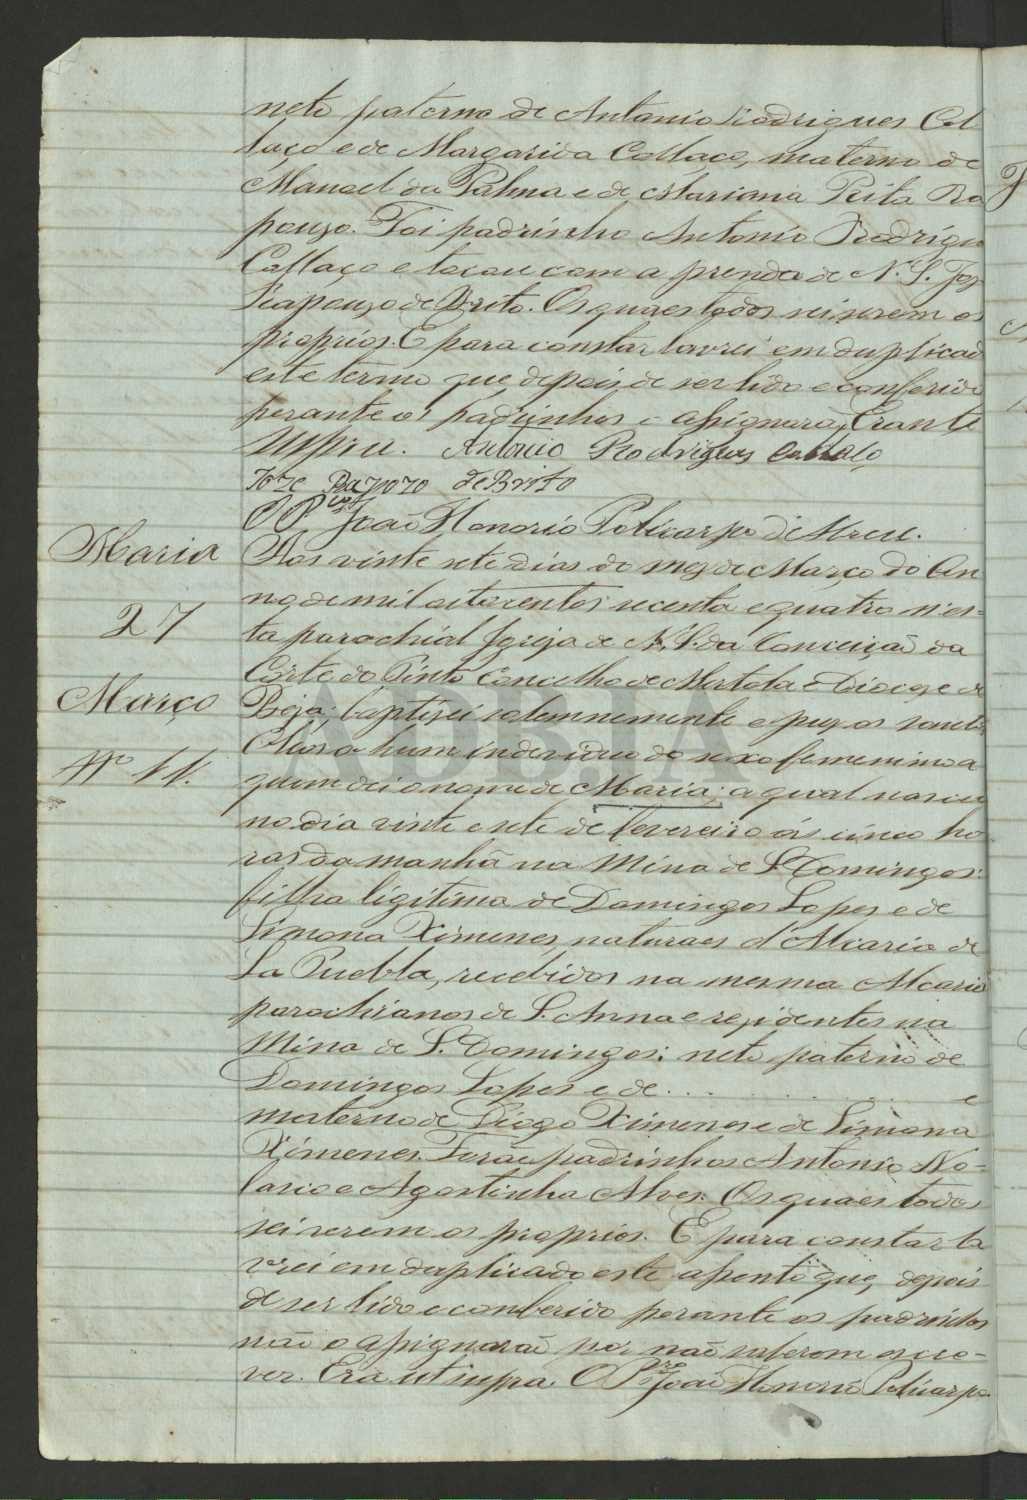 neto paterno de Antonio Rodrigues Col
laço e de Margarida Collaço, materno de
Manoel da Palma e de Mariana Rita Ra
pouzo. Foi padrinho Antonio Rodrigu
Collaço e tocou com a prenda de N. S. Joz
Rapouzo de Brito. Os quaes todos sei serem os
proprios. E para constar lavrei em duplicad
este termo que depois de ser lido e conferido
perante os padrinhos o assignarão. Era ut
supra. Antonio Rodrigues Collaço
Joze Rapozo de Brito
O P. João Honorio Policarpo d'Abreu.
Maria
27
Março
Nº 11.
Aos vinte sete dias do mez de Março do An
no de mil oitocentos secenta e quatro n'es-
ta parochial Igreja de N. S. da Conceição da
Corte do Pinto Concelho de Mertola e Diocese de
Beja; baptizei solemnemente e puz os santos
Oleos a hum individuo do sexo femenino a
quem dei o nome de Maria; a qual nasceu
no dia vinte e sete de Fevereiro ás cinco ho
ras da manhã na Mina de S. Domingos:
filha ligitima de Domingos Lopes e de
Simona Ximenes, naturaes d'Alcaria de
La Puebla, recebidos na mesma Alcaria
parochianos de S. Anna e rezidentes na
Mina de S. Domingos: neto paterno de
Domingos Lopes e de . . . . . . . . . . e
materno de Diogo Ximenes e de Simona
Ximenes. Forão padrinhos Antonio No-
lario e Agostinha Alves. Os quaes todos
sei serem os proprios. E para constar la
vrei em duplicado este assento que, depois
de ser lido e conferido perante os padrinhos
não o assignarão por não saberem escre-
ver. Era ut supra. O P.re João Honorio Policarpo
ADBJA